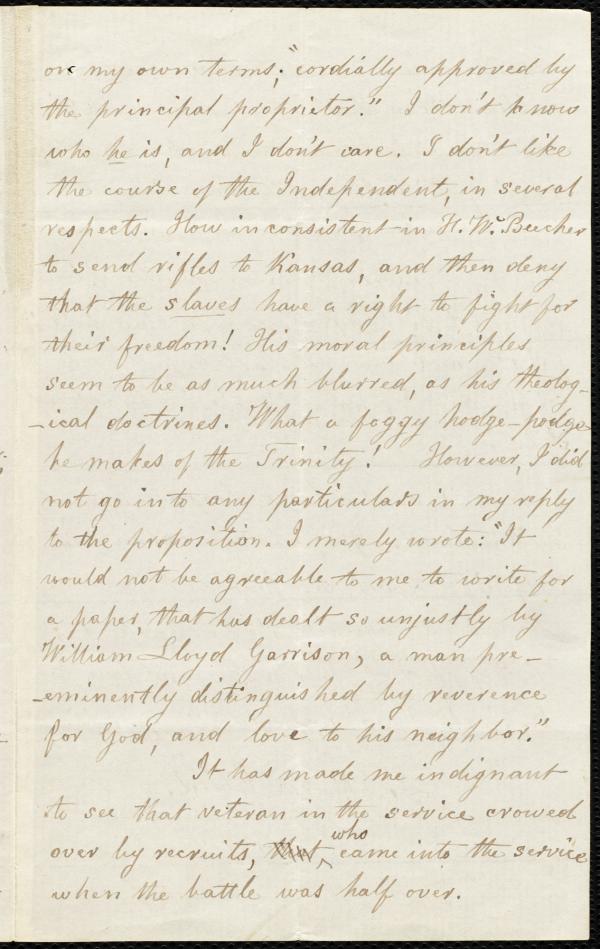 on my own terms; "cordially approved by
the principal proprietor." I don't know
who he is, and I don't care. I don't like
the course of the Independent, in several
respects. How inconsistent in H. W. Beecher
to send rifles to Kansas, and then deny
that the slaves have a right to fight for
their freedom! His moral principles
seem to be as much blurred, as his theolog-
-ical doctrines. What a foggy hodge-podge
he makes of the Trinity! However, I did
not go into any particulars in my reply
to the proposition. I merely wrote: "It
would not be agreeable to me to write for
a paper, that has dealt so unjustly by
William Lloyd Garrison, a man pre-
-eminently distinguished by reverence
for God, and love to his neighbor."
It has made me indignant
to see that veteran in the service crowed
over by recruits, who came into the service
when the battle was half over.